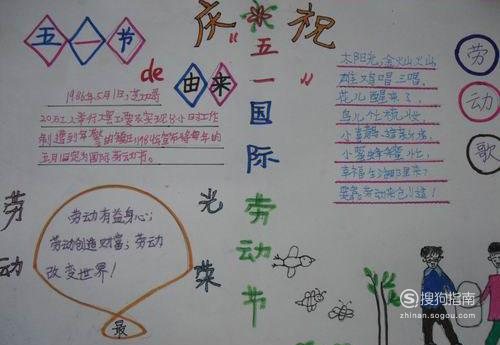 五一节
de
由来
1986年5月1日,芝加哥
20万工人举行大罢工要求实现8小时工作
制遭到军警的镇压1986年宣布将每年的
五月1日定为国际劳动节。
庆祝
"五一"
国际
劳动节
劳动歌
太阳光,金火山火山,
雄鸡唱三唱,
花儿醒来了,
鸟儿忙梳妆,
小喜鹊,造新房,
小蜜蜂采蜜忙,
幸福生活哪里来?
要靠劳动来创造!
劳动
光荣
最
劳动有益身心;
劳动创造财富;劳动
改变世界!
搜狗指南
zhinan.sogou.com